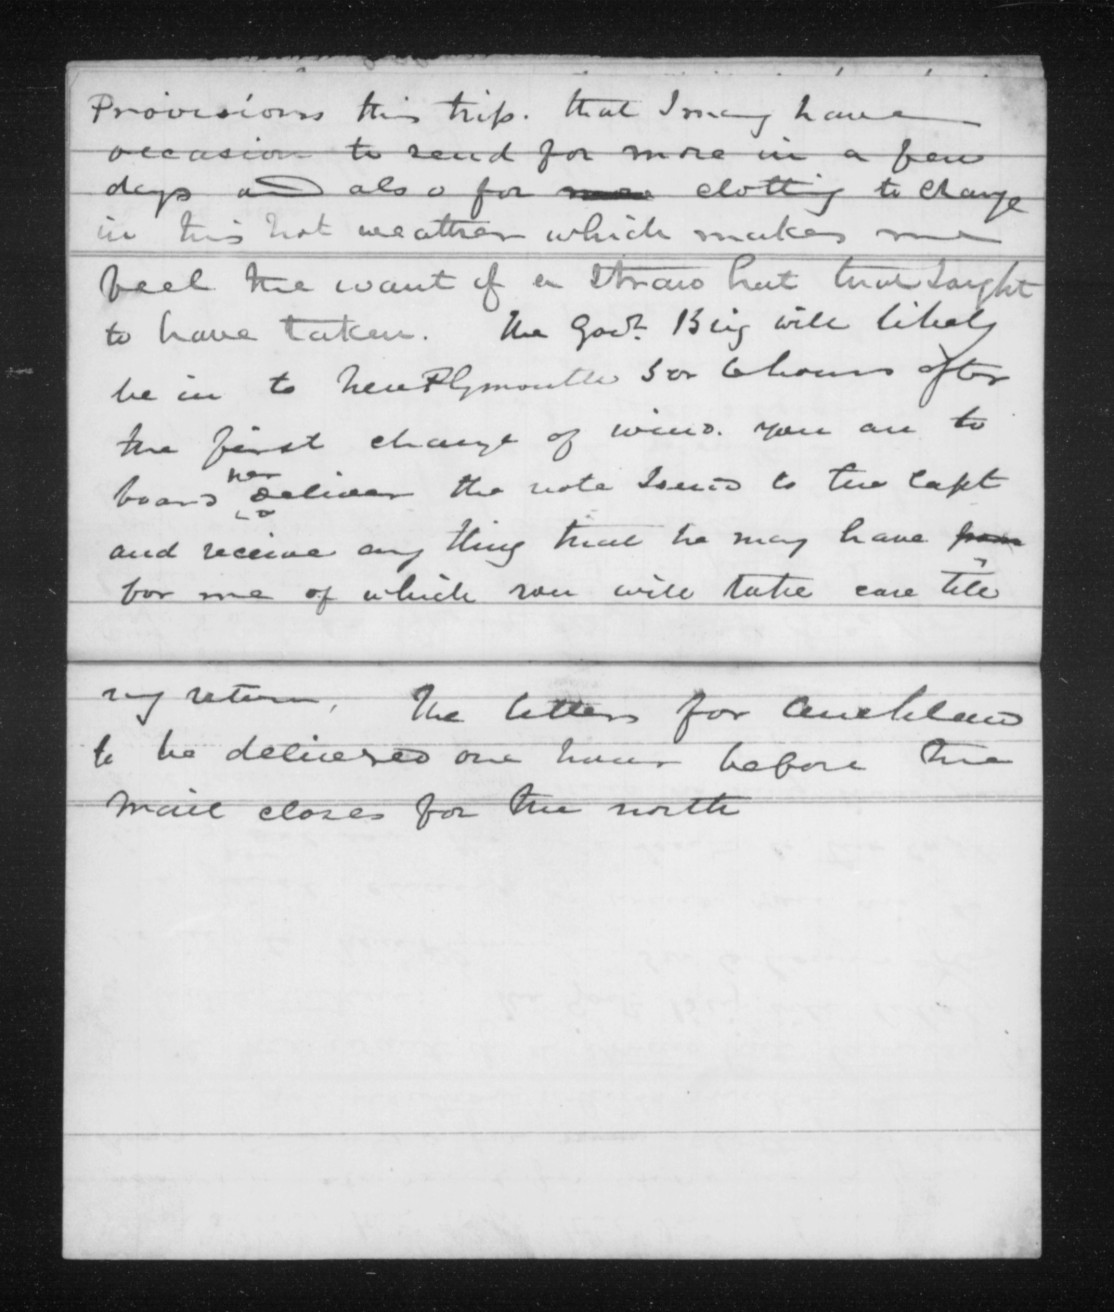 Provisions this trip. that I may have
occasion to send for more in a few
days and also for clothing to change
in this hot weather which makes me
feel the want of a Straw hat that I ought
to have taken. The Govt. Brig will likely
be in to New Plymouth 5 or 6 hours after
the first change of wind. you are to
board her & deliver the note I send to the Capt
and receive any thing that he may have from
for me of which you will take care till
my return, The letters for Auckland
to be delivered one hour before the
Mail closes for the north